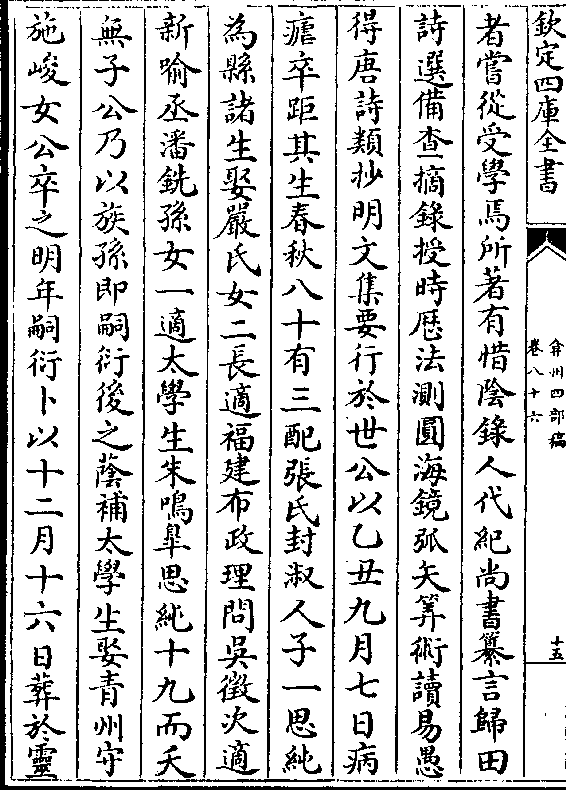 欽定四庫全書
弇州四部稿
卷八十六
十五
者嘗從受學焉所著有惜陰錄人代紀尚書纂言歸田
詩選備查摘錄授時厯法測圓海鏡弧矢筭術讀易愚
得唐詩類抄明文集要行於世公以乙丑九月七日病
瘧卒距其生春秋八十有三配張氏封淑人子一思純
為縣諸生娶嚴氏女二長適福建布政理問吳徵次適
新喻丞潘銑孫女一適太學生朱鳴臯思純十九而夭
無子公乃以族孫即嗣衍後之蔭補太學生娶青州守
施峻女公卒之明年嗣衍卜以十二月十六日葬於靈